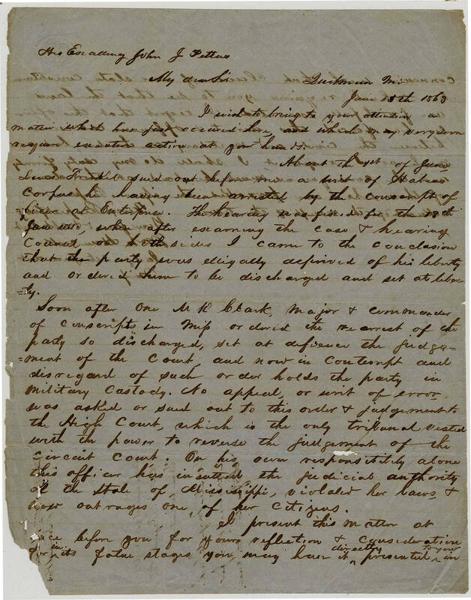 His Excellency John J Pettus
My dear Sir
Quitman Mi.
June 18th 1863
I wish to bring to your attention a
matter which has just occurred here, and which may very soon
require executive action at your hands.
About the 1st of June
sued out before me a writ of Habeas
Corpus he having been arrested by the conscript of
ficers at Enterprise. The hearing was fixed for the 10th
when after examining the case & hearing
Counsel on both sides I came to the conclusion
that the party was illegally deprived of his liberty
and ordered him to be discharged and set at liber
ty.
Soon after One M R Clark, Major & commander
of conscripts in Miss ordered the rearrest of the
party so discharged, set at defiance the judge-
ment of the Court and now in contempt and
disregard of such order holds the party in
military custody. No appeal, or writ of error
was asked or sued out to this order & judgement to
the High Court, which is the only tribunal vested
with the power to reverse the judgement of the
circuit Court. On his own responsibility alone
this officer has insulted the judicial authority
of the State of Mississippi, violated her laws, &
now outrages one of her citizens.
I present this matter at
once before you for your reflection & consideration
in its future stages you may have it directly presented to your